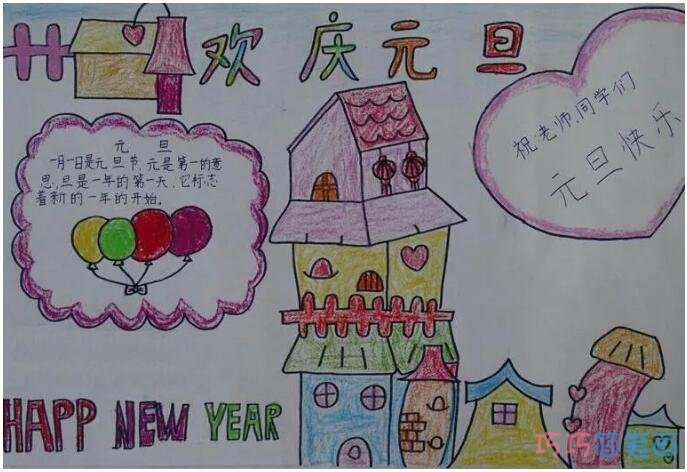 欢庆元旦
元 旦
一月一日是元旦节,元是第一的意
思,旦是一年的第一天,它标志
着新的一年的开始。
祝老师、同学们
元旦快乐
HAPP NEW YEAR
巧巧简笔画